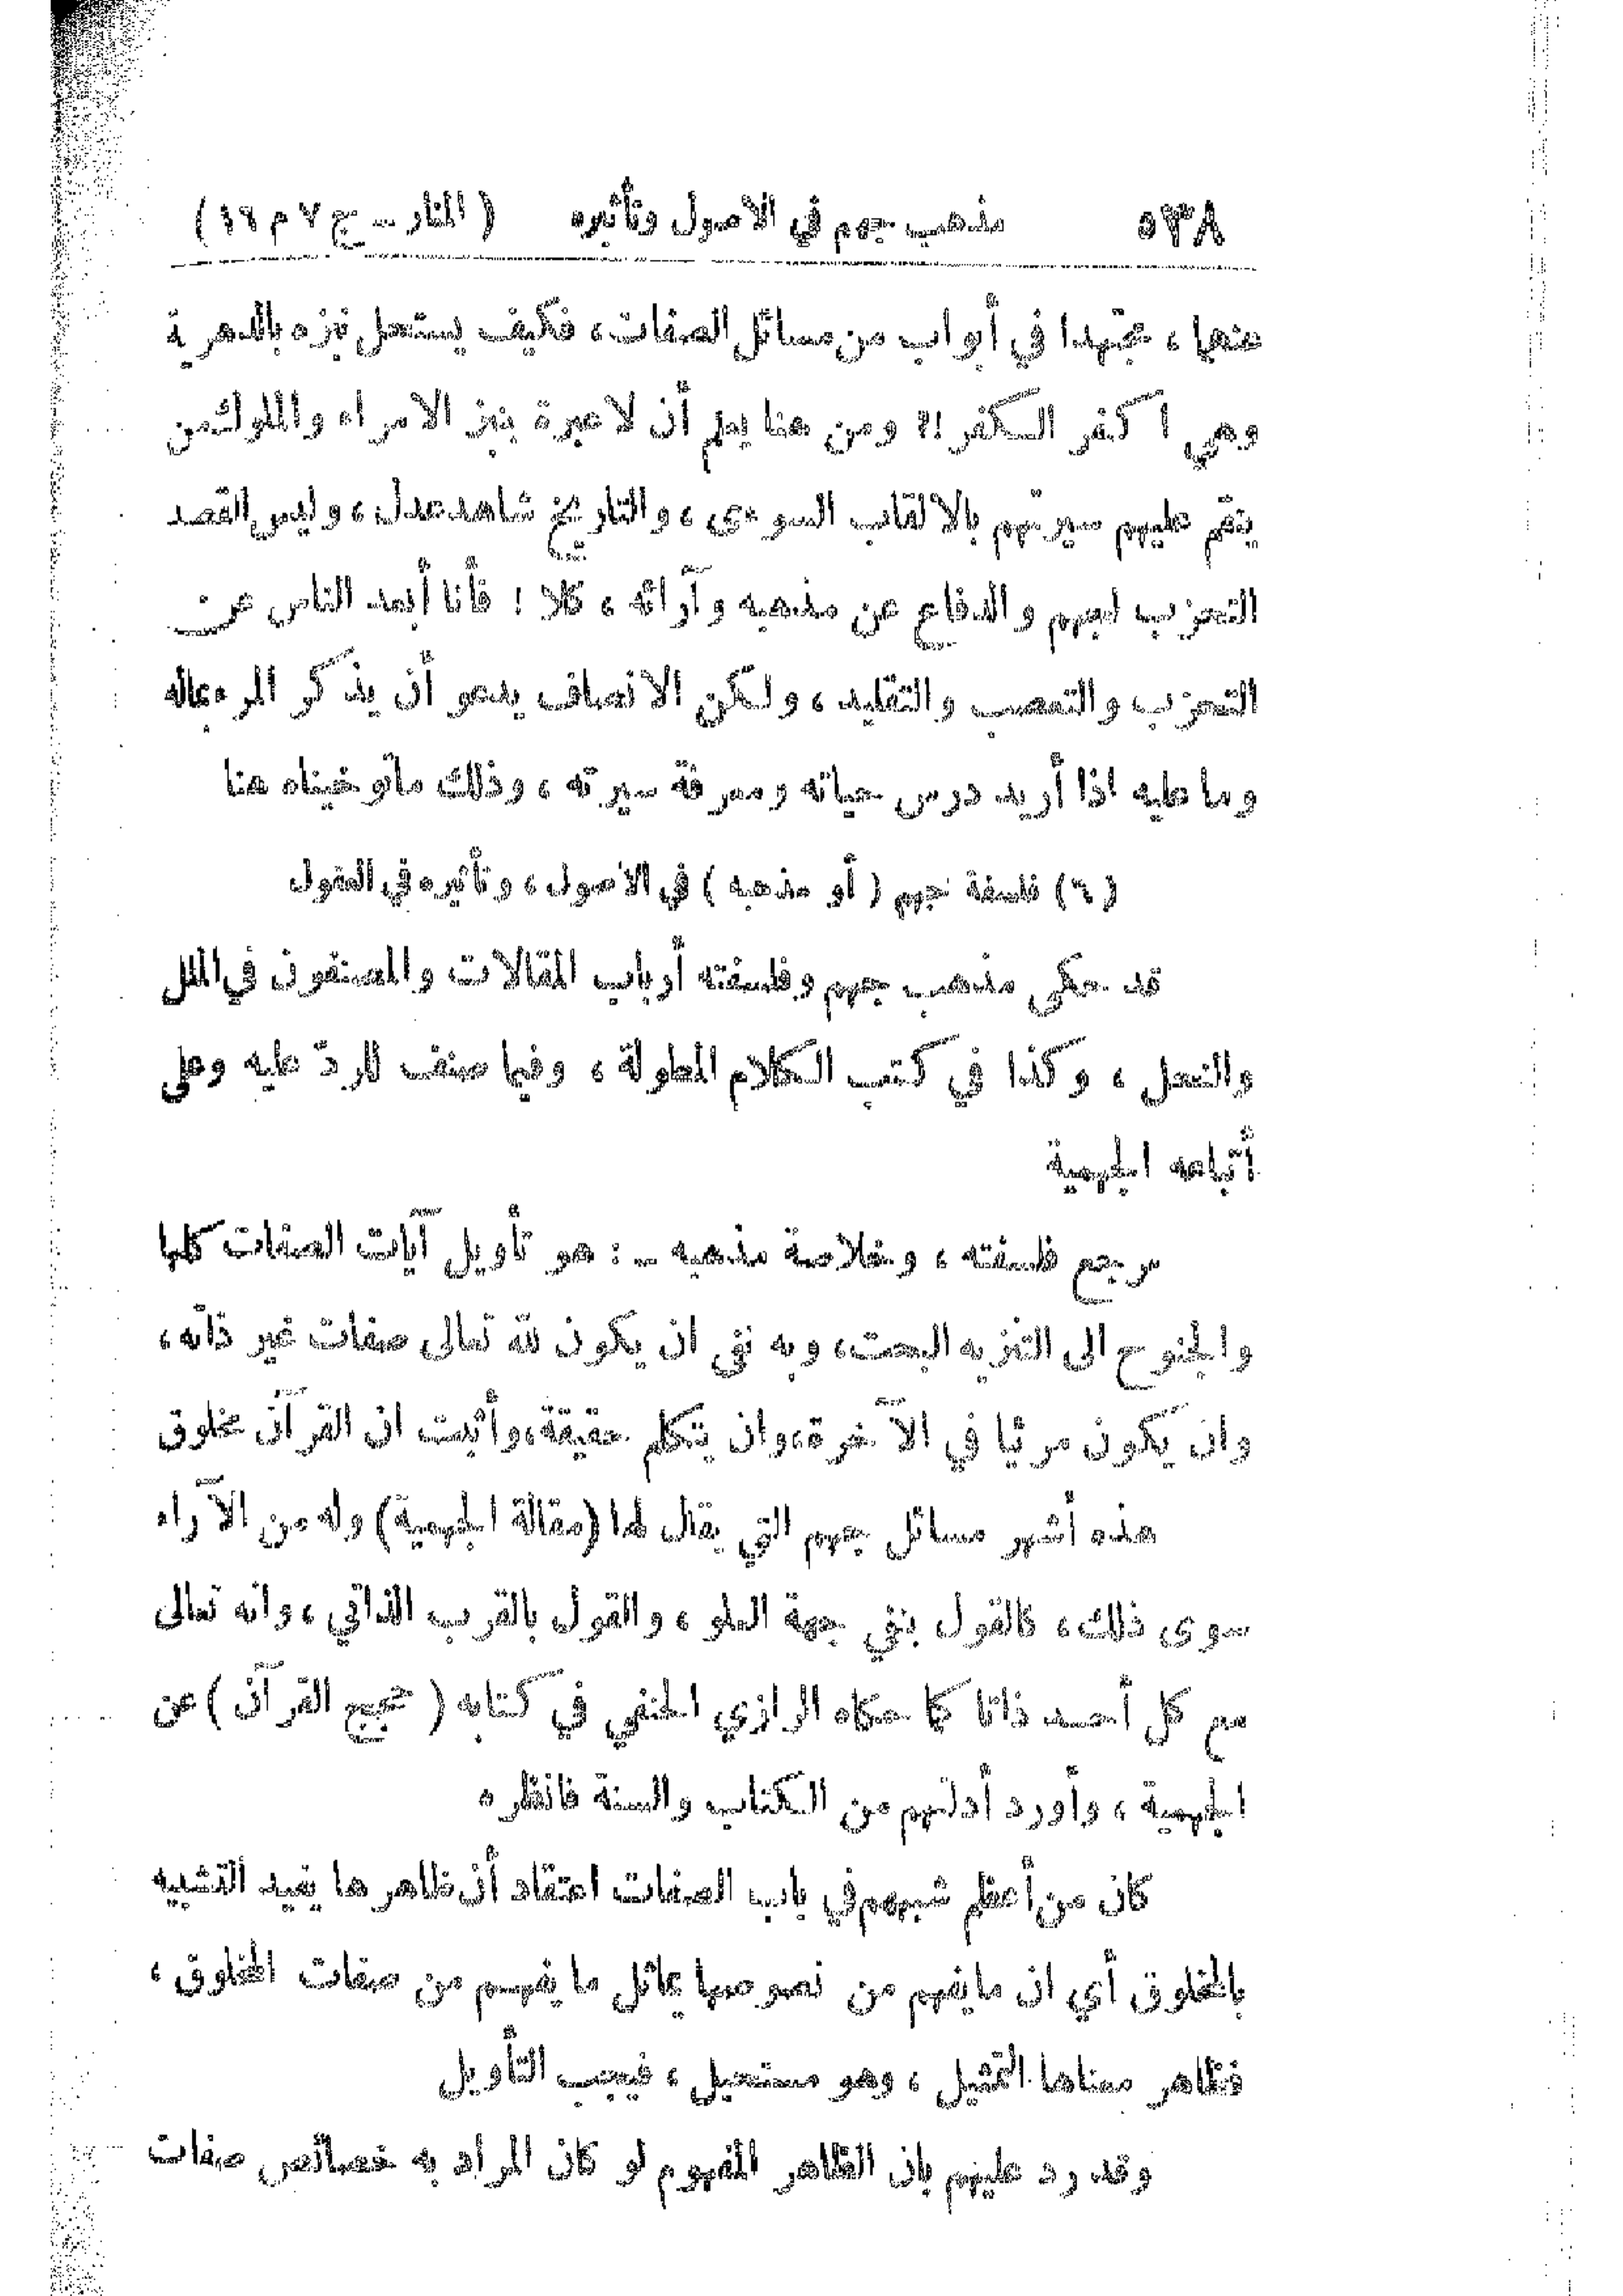 ٥٣٨ مذهب جهم في الاصول وتأثيره ( المنار – ج ٧ م ١٦ )
عنهما ، مجتهدا في أبواب من مسائل الصفات ، فكيف يستحل نبزه بالدهرية
وهي أكفر الكفر !؟ ومن هنا يعلم أن لا عبرة بنبز الامراء والملوك من
ينقم عليهم سيرتهم بالالقاب السوءى ، والتاريخ شاهد عدل ، وليس القصد
التحزب لجهم والدفاع عن مذهبه وآرائه ، كلا ! فأنا أبعد الناس عن
التحزب والتعصب والتقليد ، ولكن الانصاف يدعو أن يذكر المرء بماله
وما عليه اذا أريد درس حياته ومعرفة سيرته ، وذلك ماتوخيناه هنا
( ٦ ) فلسفة جهم ( أو مذهبه ) في الاصول ، وتأثيره في العقول
قد حكى مذهب جهم وفلسفته أرباب المقالات والمصنفون في الملل
والنحل ، وكذا في كتب الكلام المطولة ، وفيما صنف للردّ عليه وعلى
أتباعه الجهمية
مرجع فلسفته ، وخلاصة مذهبه –: هو تأويل آيات الصفات كلها
والجنوح الى التنزيه البحت ، وبه نفي ان يكون لله تعالى صفات غير ذاته ،
وان يكون مرئيا في الآخرة ، وان يتكلم حقيقة ، وأثبت ان القرآن مخلوق
هذه أشهر مسائل جهم التي يقال لها (مقالة الجهمية) وله من الآراء
سوى ذلك ، كالقول بنفي جهة العلو ، والقول بالقرب الذاتي ، وانه تعالى
مع كل أحد ذاتا كما حكاه الرازي الحنفي في كتابه ( حجج القرآن ) عن
الجهمية ، وأورد أدلتهم من الكتاب والسنة فانظره
كان من أعظم شبههم في باب الصفات اعتقاد أن ظاهرها يفيد التشبيه
بالمخلوق أي ان مايفهم من نصوصها يماثل ما يفهم من صفات المخلوق ،
فظاهر معناها التمثيل ، وهو مستحيل ، فيجب التأويل
وقد رد عليهم بان الظاهر المفهوم لو كان المراد به خصائص صفات